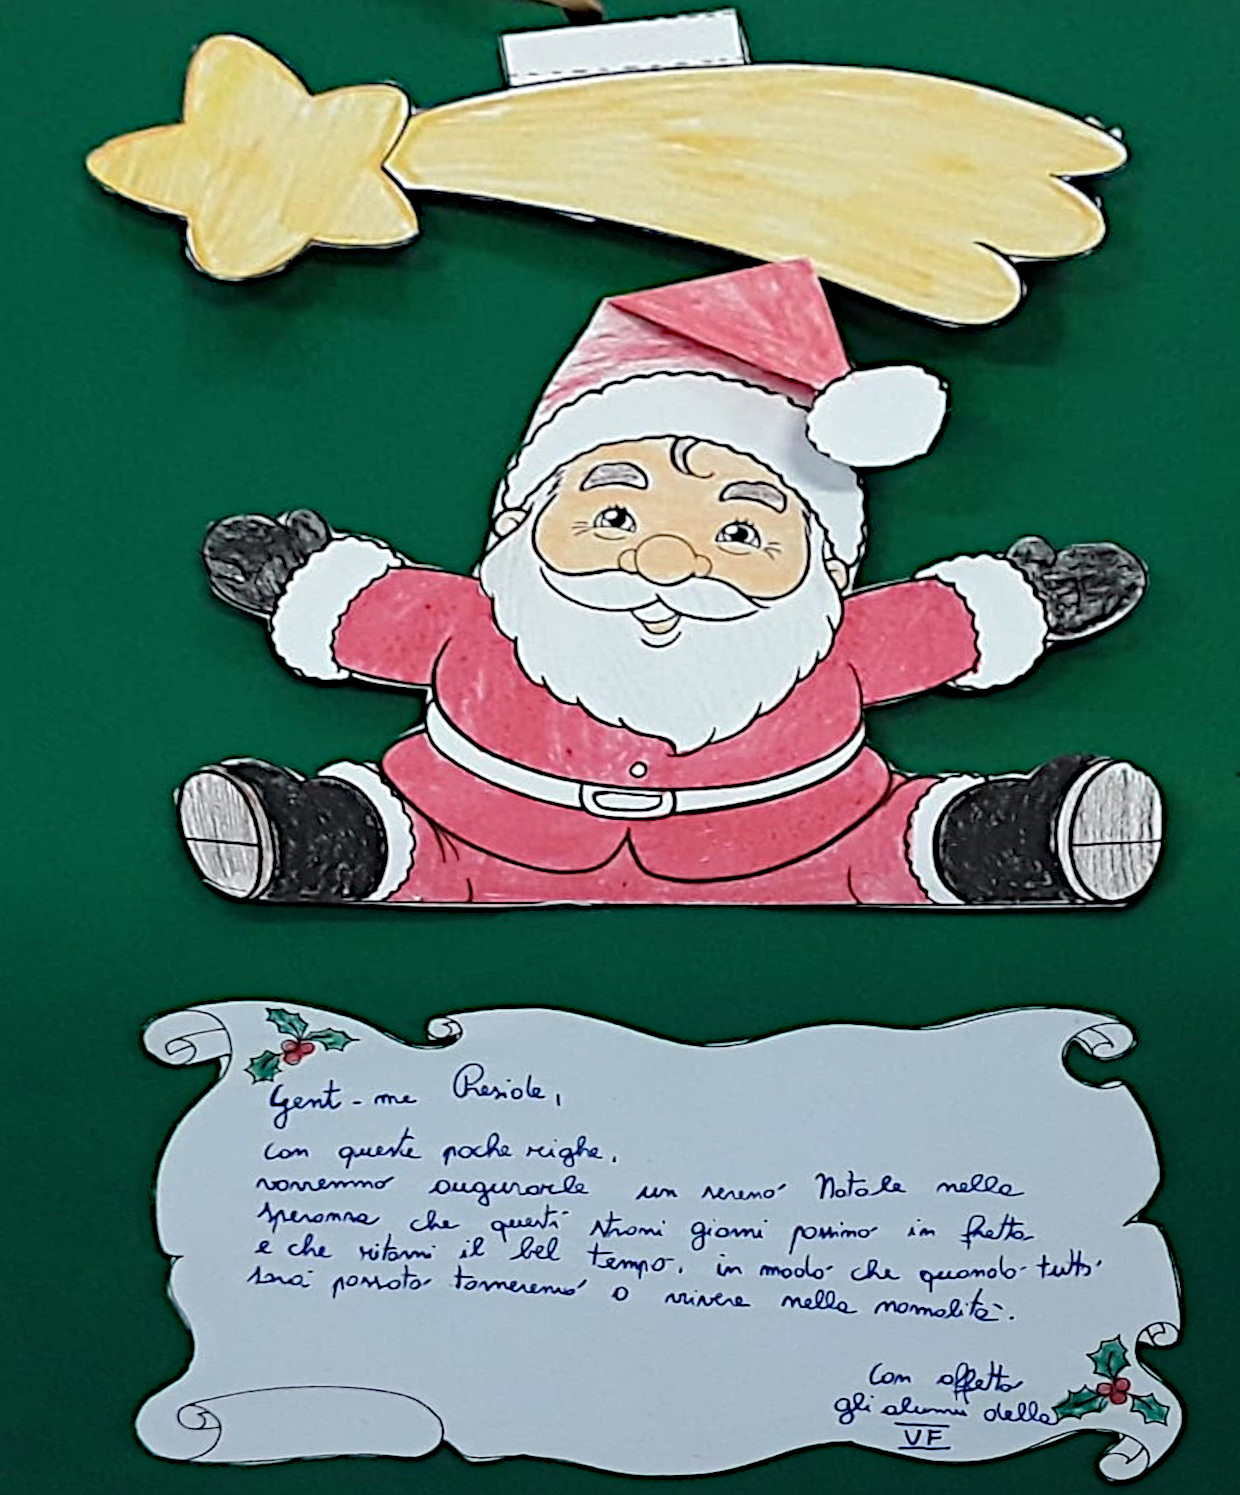 Gent-me Preside,
con queste poche righe,
vorremmo augurarle un sereno Natale nella
speranza che questi strani giorni passino in fretta
e che ritorni il bel tempo, in modo che quando tutto
sarà passato torneremo a vivere nella normalità.
Con affetto
gli alunni della
VF